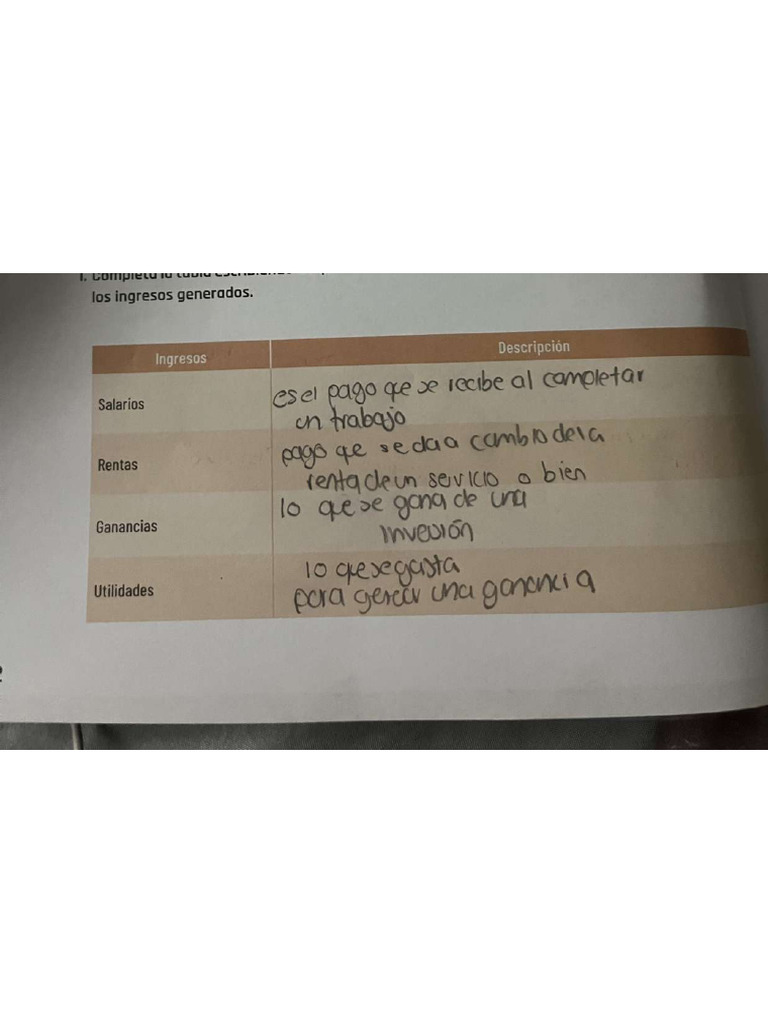 1. Completa la tabla
los ingresos generados.
Ingresos
Descripción
Salarios
es el pago que se recibe al completar
un trabajo
Rentas
pago que se da a cambio de la
renta de un servicio o bien
Ganancias
lo que se gana de una
inversión
Utilidades
lo que se gasta
para generar una ganancia